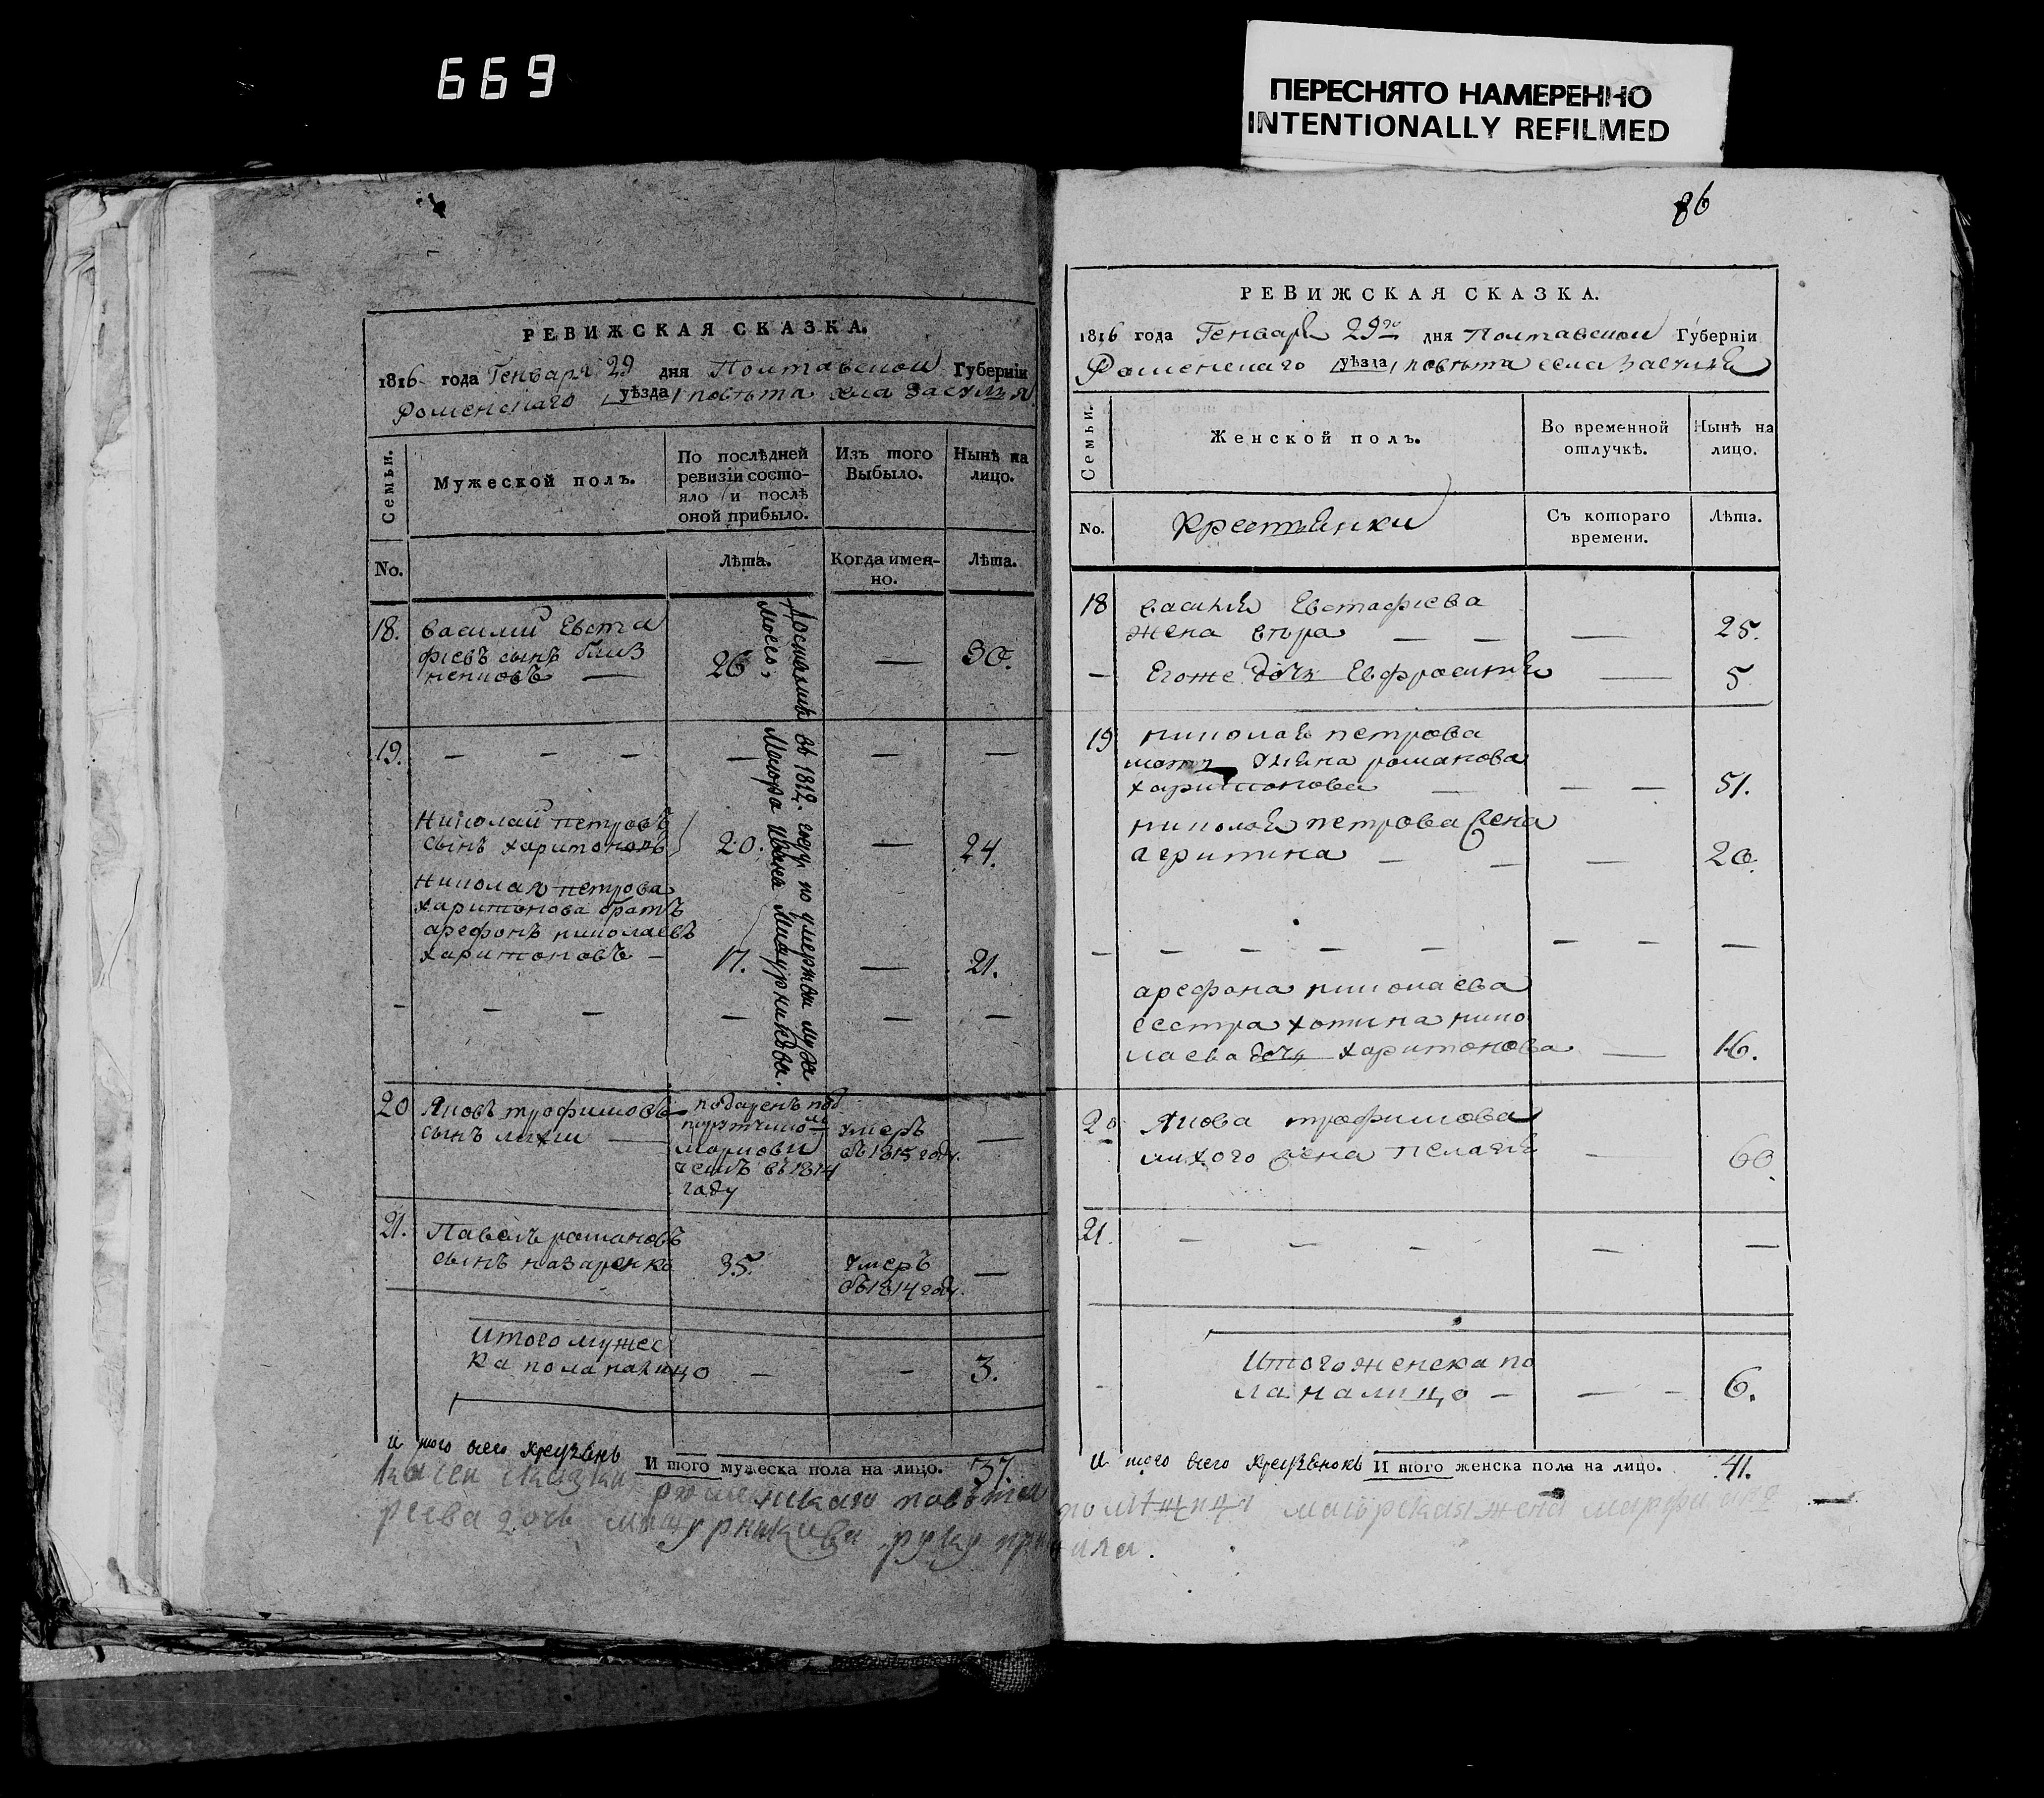 669
ПЕРЕСНЯТО НАМЕРЕННО
INTENTIONALLY REFILMED
РЕВИЖСКАЯ СКАЗКА.
1816 года Генваря 29 дня Полтавской Губерніи
Роменскаго уѣзда / повѣта села Засулья
Семьи.
Мужеской полъ.
По послѣдней ревизіи состо-
яло и послѣ
оной прибыло.
Изъ того
Выбыло.
Нынѣ на
лицо.
No.
Лѣта.
Когда имен-
но.
Лѣта.
18. василий Евста
фіевъ сынъ близ
нецовъ — 26 — 30.
Достались въ 1812. году по умертвіи мужа
моего, Маіора Ивана Мицурникова.
19. — — — — — —
Николай петровъ
сынъ харитоновъ 20. — 24.
николая петрова
харитонова братъ
арефонъ николаевъ
харитоновъ — 17. — 21.
— — — — — —
20 Яковъ трофимовъ
сынъ лихий —
подаренъ под
маркови
чемъ въ 1814
году
умеръ
въ 1815 году. —
21. Павелъ романовъ
сынъ назаренко 35.
умеръ
въ 1814 году. —
Итого мужес
ка пола налицо — — 3.
И того всего
И того мужеска пола на лицо. 37.
86
РЕВИЖСКАЯ СКАЗКА.
1816 года Генваря 29го дня Полтавской Губерніи
Роменскаго уѣзда / повѣта села Засулья
Семьи.
Женской полъ.
Во временной
отлучкѣ.
Нынѣ на
лицо.
No.
Крестьянки
Съ котораго
времени.
Лѣта.
18 василия Евстафіева
жена вѣра — — — 25.
— Егоже дочь Евфросиния — 5
19 николая петрова
мать романова
харитонова — — — 51.
николая петрова жена
— — 20.
— — — — — — — —
арефона николаева
сестра хотина нико
лаева дочь харитонова — 16.
20 Якова трофимова
лихого жена пелагея — 60
21. — — — — —
Итого женска по
ла налицо — — - 6.
И того всего
И того женска пола на лицо. 41.
К сей сказки роменскаго повѣта помѣщица маіорская жена марфа
дочь Мицурникова руку приложила.